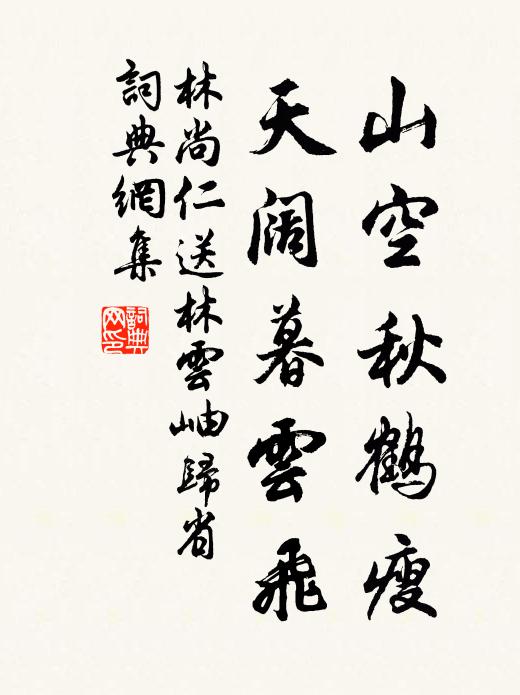 山空秋鶴瘦
天阔暮雲飛
林尚仁送林雲岫歸省
詞典網集
詞典网印